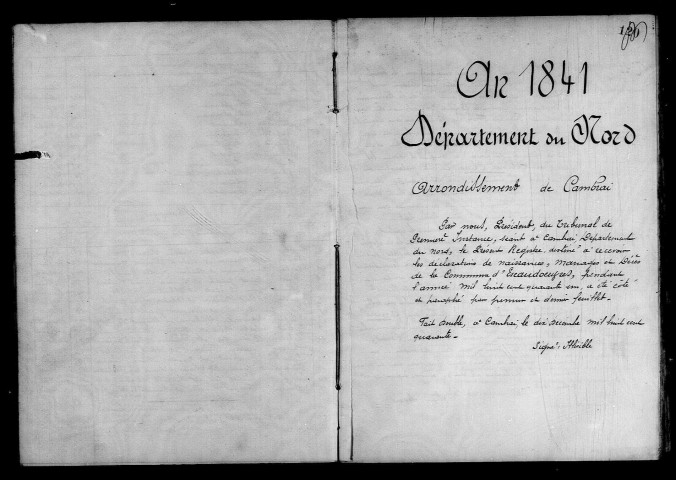 An 1841
Département du Nord
Arrondissement de Cambrai
Par nous, Président, du Tribunal de
Première Instance, séant à Cambrai, Département
du Nord, le Présent Registre, destiné à recevoir
les déclarations de naissances, mariages et Décès
de la Commune d'Escaudoeuvres, pendant
l'année mil huit cent quarante un, a été côté
et paraphé par premier et dernier feuillet.
Fait double, à Cambrai, le dix décembre mil huit cent
quarante.
Signé: illisible